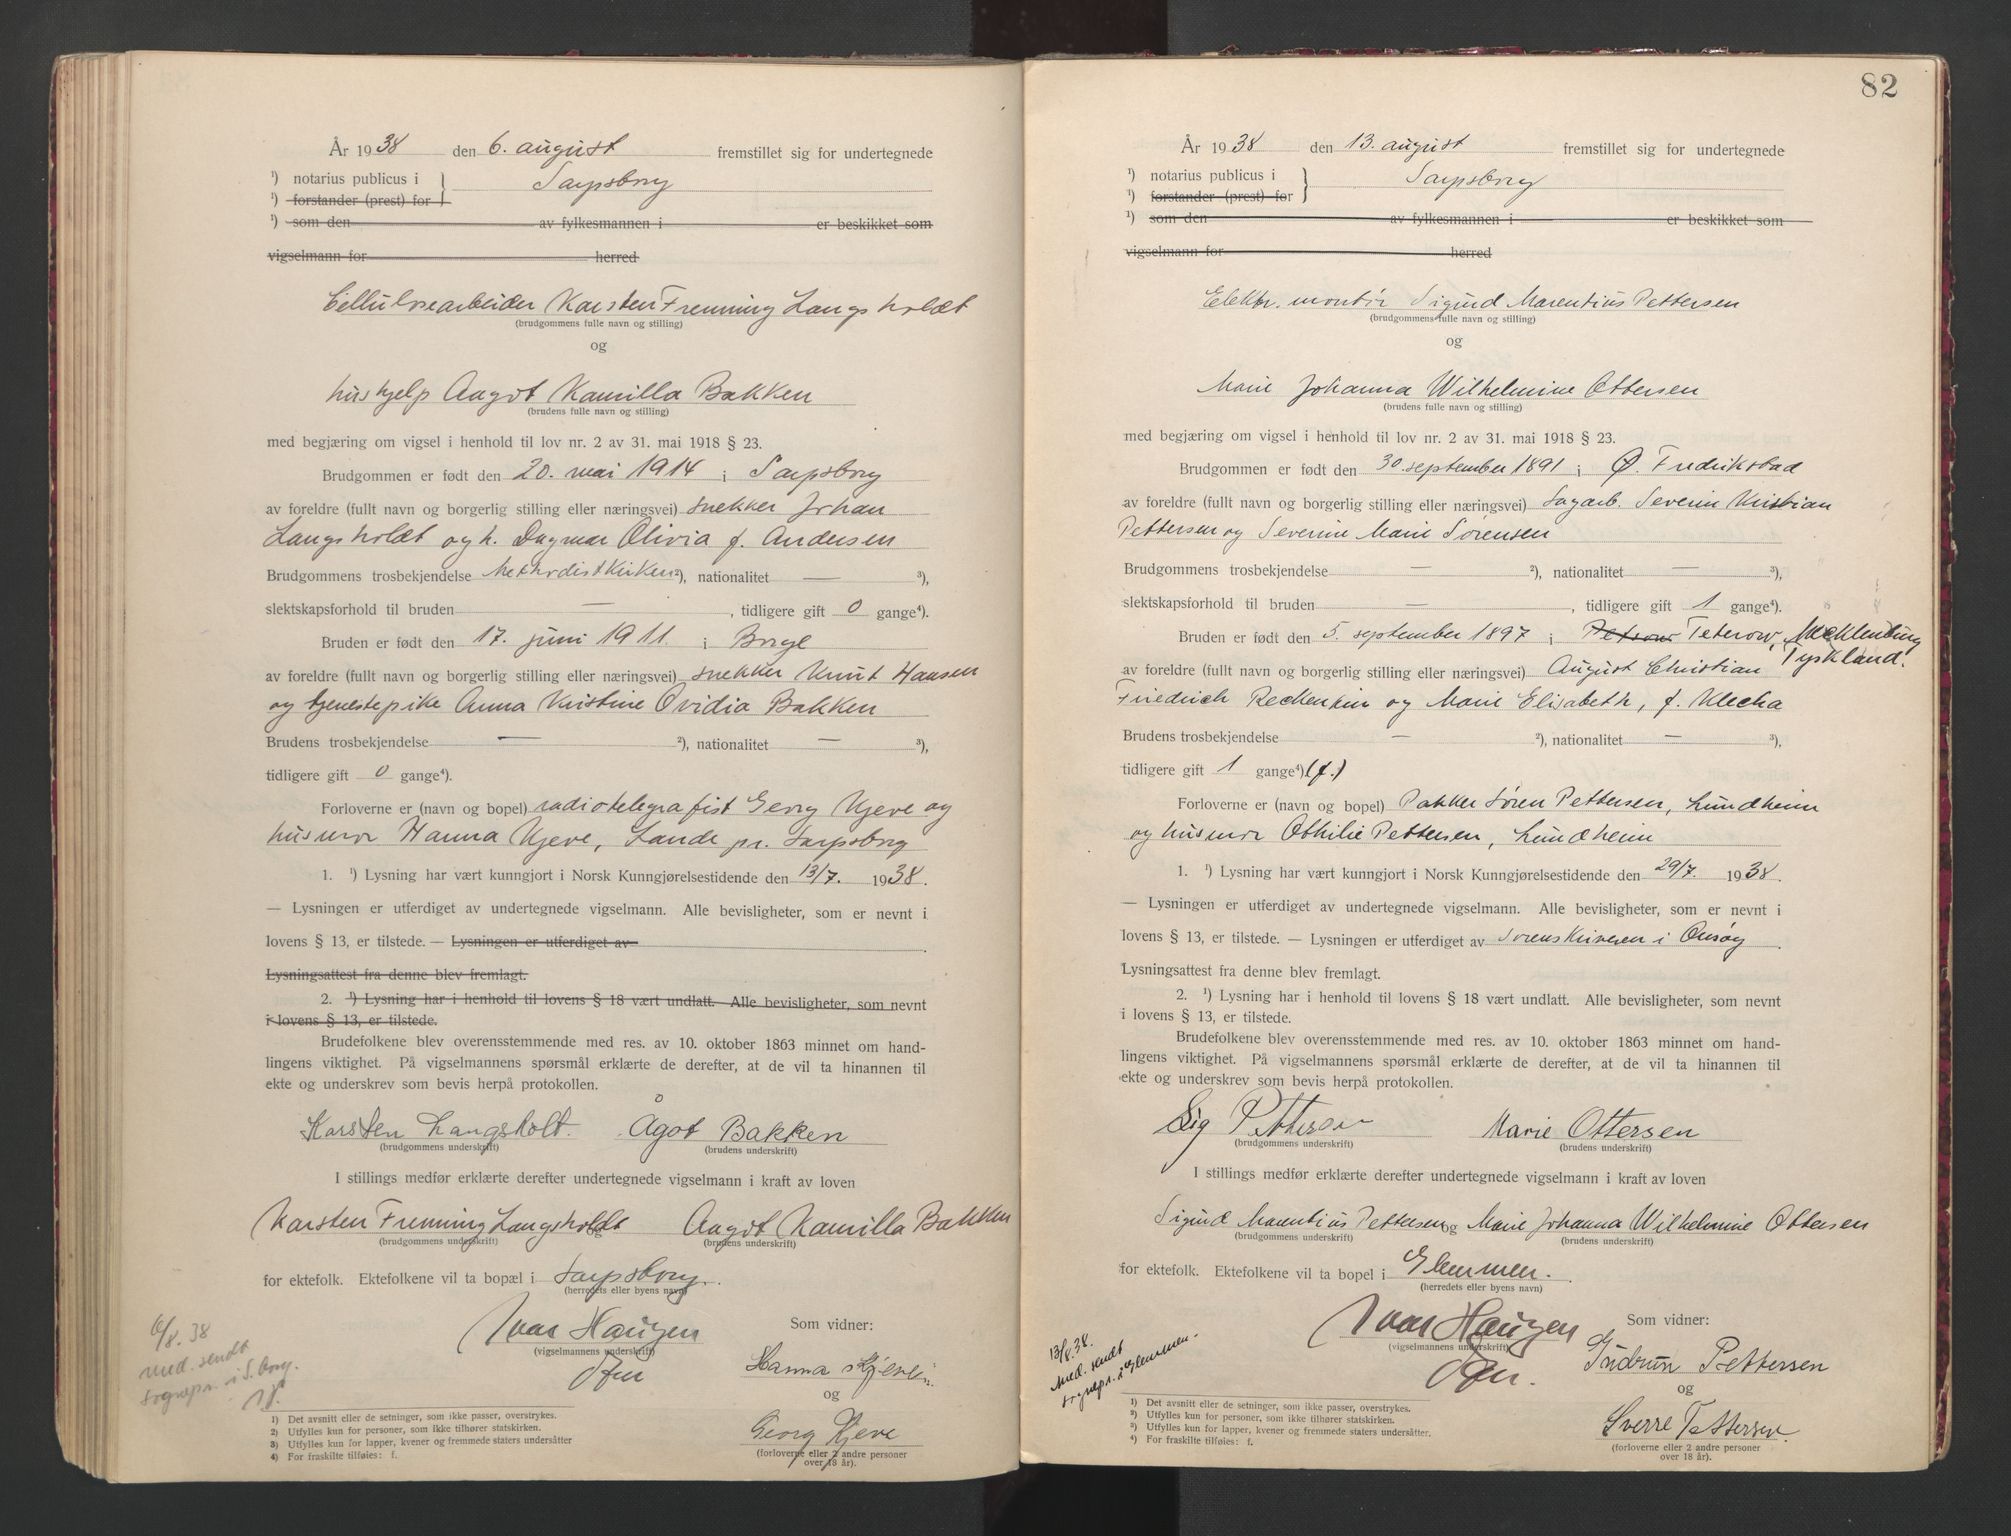 År 1938 den 6. august fremstillet sig for undertegnede
¹) notarius publicus i } Sarpsborg
¹) forstander (prest) for
¹) som den av fylkesmannen i er beskikket som
vigselmann for herred
Cellulosearbeider Karsten Frenning Langsholdt
(brudgommens fulle navn og stilling)
og
hushjelp Aagot Kamilla Bakken
(brudens fulle navn og stilling)
med begjæring om vigsel i henhold til lov nr. 2 av 31. mai 1918 § 23.
Brudgommen er født den 20. mai 1914 i Sarpsborg
av foreldre (fullt navn og borgerlig stilling eller næringsvei) snekker Johan
Langsholdt og h. Dagmar Olivia f. Andersen
Brudgommens trosbekjendelse Methodistkirken ²), nationalitet — ³),
slektskapsforhold til bruden — , tidligere gift 0 gange⁴).
Bruden er født den 17. juni 1911. i Borge
av foreldre (fullt navn og borgerlig stilling eller næringsvei) snekker Knut Hansen
og tjenestepike Anna Kristine Ovidia Bakken
Brudens trosbekjendelse — ²), nationalitet — ³),
tidligere gift 0 gange⁴).
Forloverne er (navn og bopel) radiotelegrafist Georg Kjeve og
husmor Hanna Kjeve, Lande pr. Sarpsborg
1. ¹) Lysning har vært kunngjort i Norsk Kunngjørelsestidende den 13/7. 1938.
— Lysningen er utferdiget av undertegnede vigselmann. Alle bevisligheter, som er nevnt i
lovens § 13, er tilstede. — Lysningen er utferdiget av
Lysningsattest fra denne blev fremlagt.
2. ¹) Lysning har i henhold til lovens § 18 vært undlatt. Alle bevisligheter, som nevnt
i lovens § 13, er tilstede.
Brudefolkene blev overensstemmende med res. av 10. oktober 1863 minnet om hand-
lingens viktighet. På vigselmannens spørsmål erklærte de derefter, at de vil ta hinannen til
ekte og underskrev som bevis herpå protokollen.
Karsten Langsholt. Ågot Bakken
(brudgommens underskrift) (brudens underskrift)
I stillings medfør erklærte derefter undertegnede vigselmann i kraft av loven
Karsten Frenning Langsholdt og Aagot Kamilla Bakken
(brudgommens underskrift) (brudens underskrift)
for ektefolk. Ektefolkene vil ta bopæl i Sarpsborg.
(herredets eller byens navn)
Ivar Haugen
(vigselmannens underskrift)
Som vidner:
Hanna Kjeve
og
Georg Kjeve
(forloverne eller 2 andre personer
over 18 år).
6/8.38
med. sendt
sognepr. i S.borg.
1) Det avsnitt eller de setninger, som ikke passer, overstrykes.
2) Utfylles kun for personer, som ikke tilhører statskirken.
3) Utfylles kun for lapper, kvener og fremmede staters undersåtter
4) For fraskilte tilføies: f.
82
År 1938 den 13. august fremstillet sig for undertegnede
¹) notarius publicus i } Sarpsborg
¹) forstander (prest) for
¹) som den av fylkesmannen i er beskikket som
vigselmann for herred
Elektr. montør Sigurd Marentius Pettersen
(brudgommens fulle navn og stilling)
og
Marie Johanna Wilhelmine Ottersen
(brudens fulle navn og stilling)
med begjæring om vigsel i henhold til lov nr. 2 av 31. mai 1918 § 23.
Brudgommen er født den 30. september 1891 i Ø. Fredrikstad
av foreldre (fullt navn og borgerlig stilling eller næringsvei) sagarb. Severin Kristian
Pettersen og Severine Marie Sørensen
Brudgommens trosbekjendelse — ²), nationalitet — ³),
slektskapsforhold til bruden — , tidligere gift 1 gange⁴).
Bruden er født den 5. september 1897 i Teterow, Mecklenburg
Tyskland.
av foreldre (fullt navn og borgerlig stilling eller næringsvei) August Christian
Friedrich Reckenkin og Marie Elisabeth, f. Klecha
Brudens trosbekjendelse — ²), nationalitet — ³),
tidligere gift 1 gange⁴) (f.)
Forloverne er (navn og bopel) Pakker Søren Pettersen, Lundheim
og husmor Othilie Pettersen, Lundheim
1. ¹) Lysning har vært kunngjort i Norsk Kunngjørelsestidende den 29/7. 1938.
— Lysningen er utferdiget av undertegnede vigselmann. Alle bevisligheter, som er nevnt i
lovens § 13, er tilstede. — Lysningen er utferdiget av Sorenskriveren i Onsøy
Lysningsattest fra denne blev fremlagt.
2. ¹) Lysning har i henhold til lovens § 18 vært undlatt. Alle bevisligheter, som nevnt
i lovens § 13, er tilstede.
Brudefolkene blev overensstemmende med res. av 10. oktober 1863 minnet om hand-
lingens viktighet. På vigselmannens spørsmål erklærte de derefter, at de vil ta hinannen til
ekte og underskrev som bevis herpå protokollen.
Sig Pettersen Marie Ottersen
(brudgommens underskrift) (brudens underskrift)
I stillings medfør erklærte derefter undertegnede vigselmann i kraft av loven
Sigurd Marentius Pettersen og Marie Johanna Wilhelmine Ottersen
(brudgommens underskrift) (brudens underskrift)
for ektefolk. Ektefolkene vil ta bopel i Glemmen.
(herredets eller byens navn)
Ivar Haugen
(vigselmannens underskrift)
Som vidner:
Gudrun Pettersen
og
Sverre Pettersen.
(forloverne eller 2 andre personer
over 18 år).
13/8.38.
med. sendt
sognepr. i Glemmen.
1) Det avsnitt eller de setninger, som ikke passer, overstrykes.
2) Utfylles kun for personer, som ikke tilhører statskirken.
3) Utfylles kun for lapper, kvener og fremmede staters undersåtter.
4) For fraskilte tilføies: f.